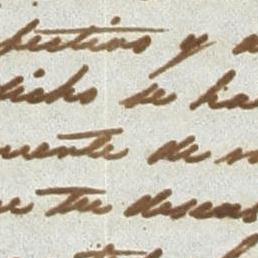 pectivo y a
dicho se ha
mente de m
e tu deseas